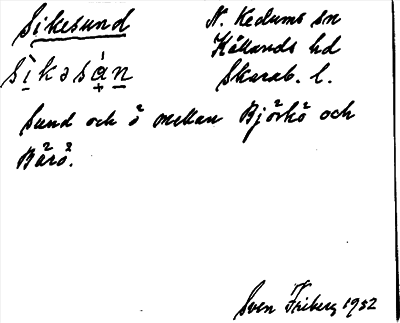 Sikesund N. Kedums sn
Kållands hd
sìkəsán Skarab. l.
Sund och ö mellan Björkö och
Bärö.
Sven Friberg 1932